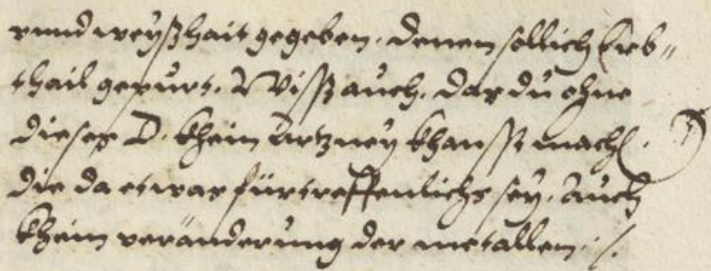 vnnd weyßhait gegeben. denen sollich Erb„
thail gepurt. Wiß auch, das du ohne
dieses D. khein Artzney khanst mach[en].
die da etwas fürtreffenlichs sey. Auch
khein veränderung der metallen ./.